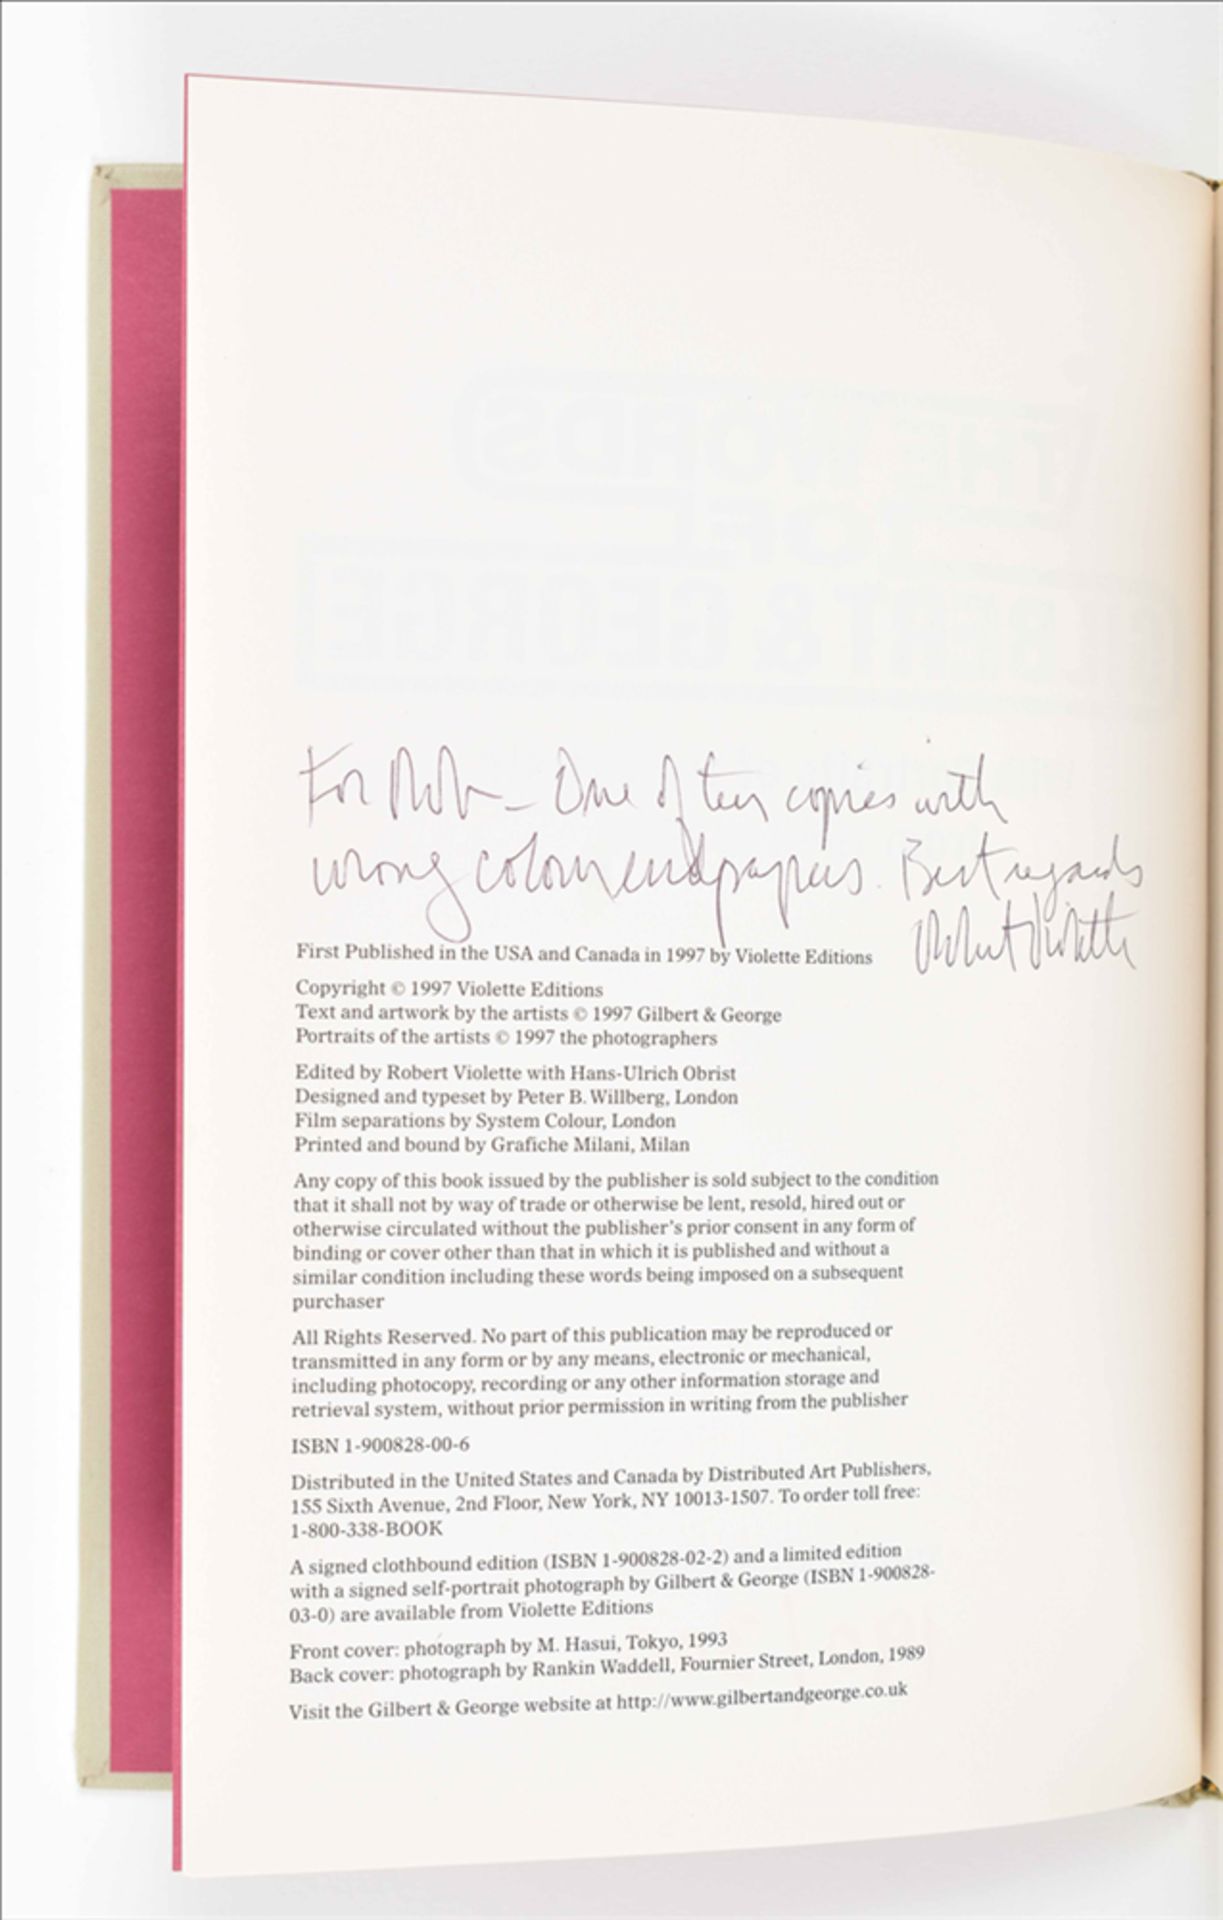 THE WORDS
OF
GILBERT & GEORGE
For Rob - One of ten copies with
wrong colour endpapers. Best regards
Robert Violette
First Published in the USA and Canada in 1997 by Violette Editions
Copyright © 1997 Violette Editions
Text and artwork by the artists © 1997 Gilbert & George
Portraits of the artists © 1997 the photographers
Edited by Robert Violette with Hans-Ulrich Obrist
Designed and typeset by Peter B. Willberg, London
Film separations by System Colour, London
Printed and bound by Grafiche Milani, Milan
Any copy of this book issued by the publisher is sold subject to the condition
that it shall not by way of trade or otherwise be lent, resold, hired out or
otherwise circulated without the publisher's prior consent in any form of
binding or cover other than that in which it is published and without a
similar condition including these words being imposed on a subsequent
purchaser
All Rights Reserved. No part of this publication may be reproduced or
transmitted in any form or by any means, electronic or mechanical,
including photocopy, recording or any other information storage and
retrieval system, without prior permission in writing from the publisher
ISBN 1-900828-00-6
Distributed in the United States and Canada by Distributed Art Publishers,
155 Sixth Avenue, 2nd Floor, New York, NY 10013-1507. To order toll free:
1-800-338-BOOK
A signed clothbound edition (ISBN 1-900828-02-2) and a limited edition
with a signed self-portrait photograph by Gilbert & George (ISBN 1-900828-
03-0) are available from Violette Editions
Front cover: photograph by M. Hasui, Tokyo, 1993
Back cover: photograph by Rankin Waddell, Fournier Street, London, 1989
Visit the Gilbert & George website at http://www.gilbertandgeorge.co.uk